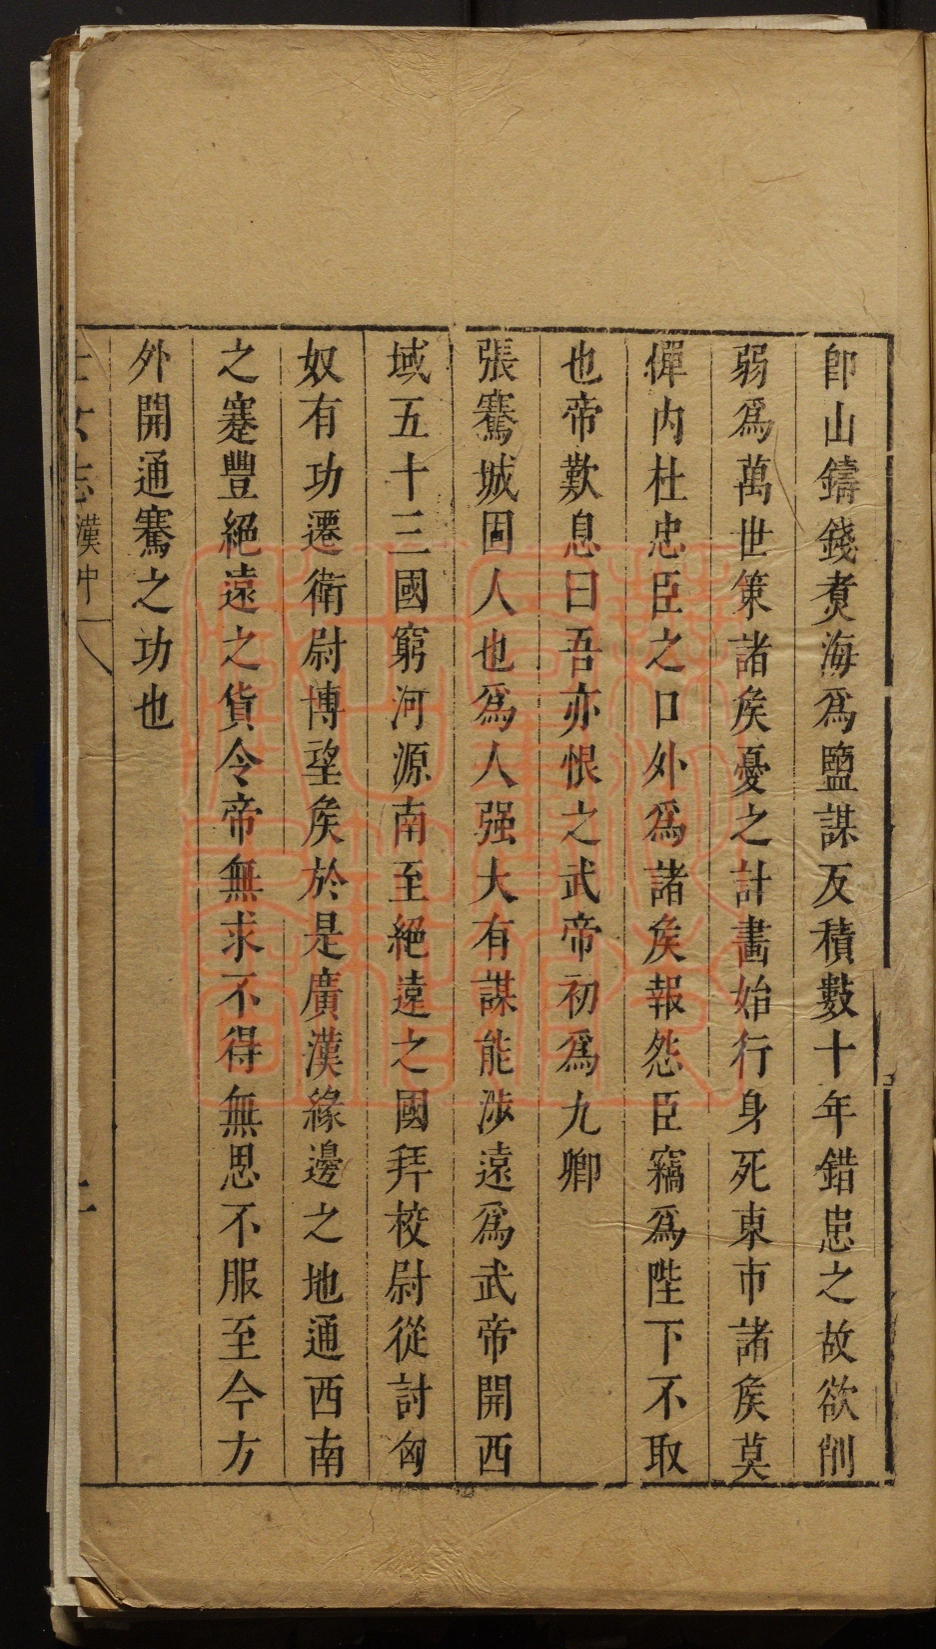 卽山鑄錢煑海爲鹽謀反積數十年錯患之故欲削
弱爲萬世策諸矦憂之計畵始行身死東市諸矦莫
憚内杜忠臣之口外爲諸矦報怨臣竊爲陛下不取
也帝歎息曰吾亦恨之武帝初爲九卿
張騫城固人也爲人强大有謀能涉遠爲武帝開西
域五十三國窮河源南至絕遠之國拜校尉從討匈
奴有功遷衛尉博望矦於是廣漢緣邊之地通西南
之蹇豐絕遠之貨令帝無求不得無思不服至今方
外開通騫之功也
士女志 漢中